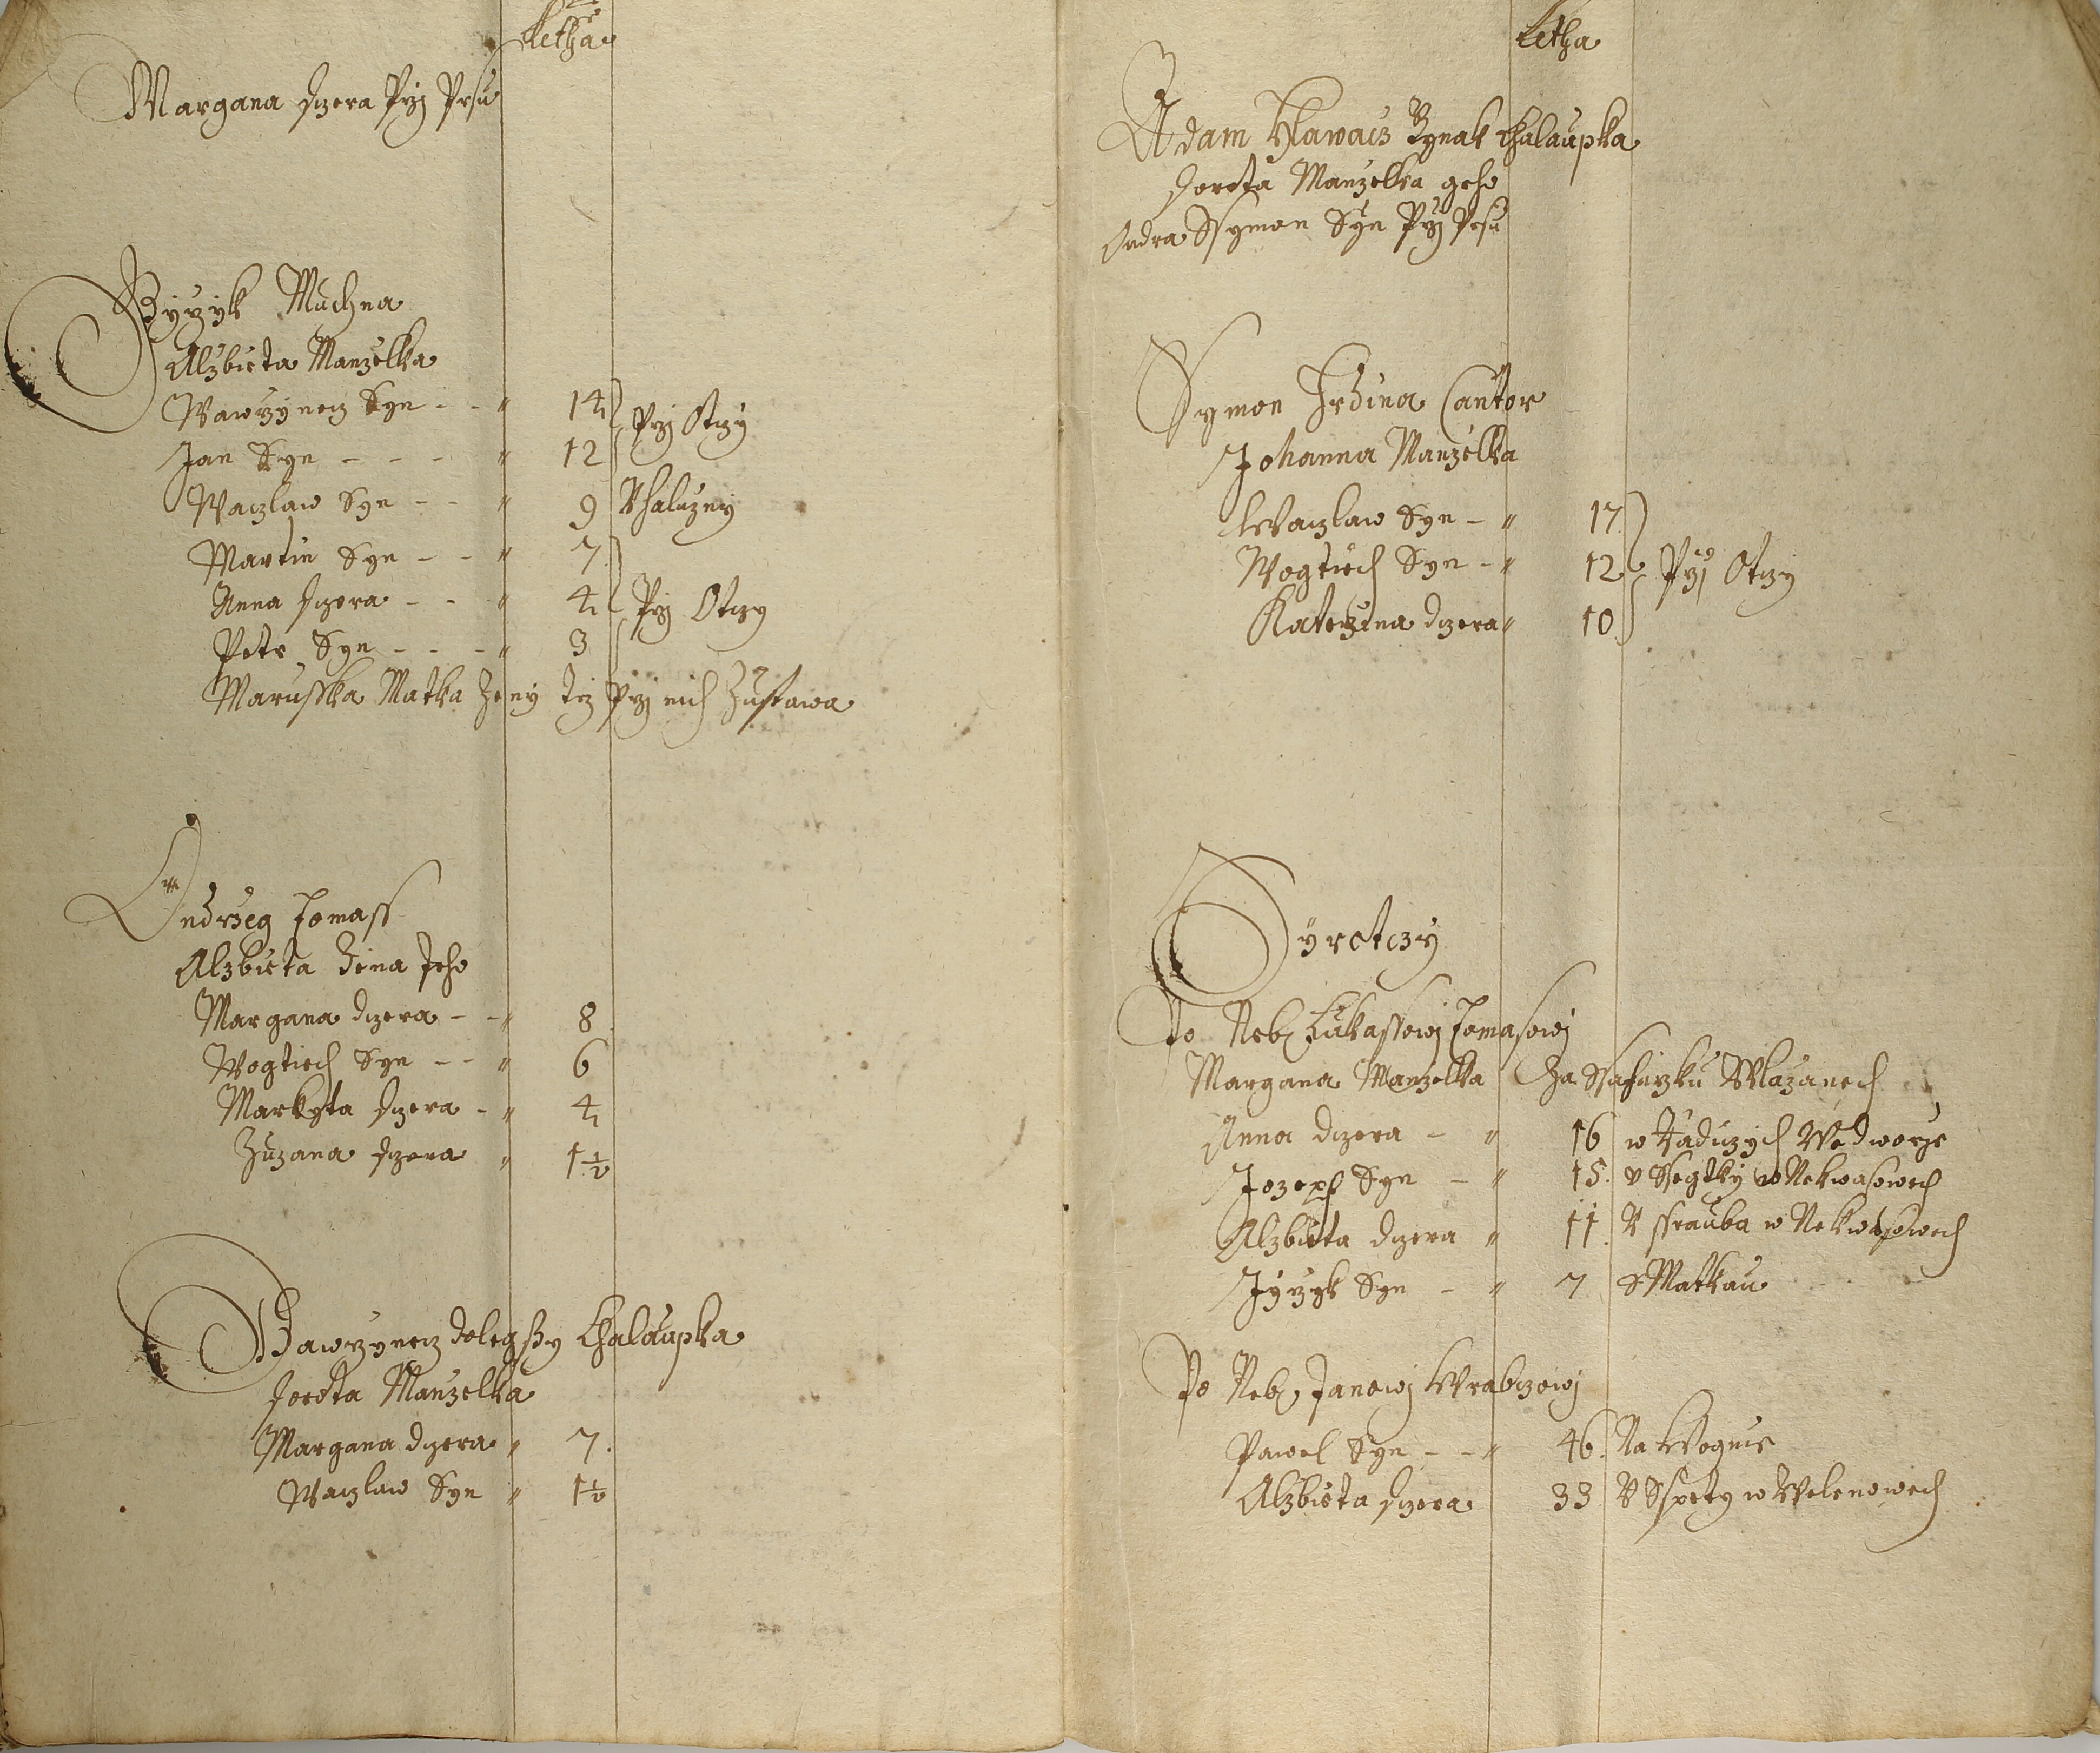 Letha
Margana dczera Przj Prsu
Girzyk Muchna
Alzbieta Manzelka
Wawrzynecz Syn - - " 14 Przj Otczy
Jan Syn - - - " 12
Waczlaw Syn - - " 9 Khaluzny
Martin Syn - - " 7
Anna dczera - - " 4 Przj Otczy
Petr Syn - - - " 3
Marusska Matka Zeny tez Przj nich Zustawa
Ondrzeg Tomass
Alzbieta Zena Jeho
Margana dczera - - " 8
Wogtiech Syn - - " 6
Markyta dczera - " 4
Zuzana dczera " 1½
Wawrzynecz dolegssy Chalaupka
Dorota Manzelka
Margana dczera " 7.
Waczlaw Syn " 1½
Letha
Adam Hlawacz Rynak Chalaupka
Dorota Manzelka geho
Ondra Ssymon Syn Przj Prsu
Symon Hrdina Cantor
Johanna Manzelka
Waczlaw Syn - " 17
Wogtiech Syn - " 12 Przj Otczy
Katerzina dczera " 10
Syrotczy
Po Neb: Lukassowj Tomasowj
Margana Manzelka Za Ssafarzku Wlazanech
Anna dczera - " 16 w Radiczych We dworze
Jozeph Syn - " 15. v Ssegtky w Nekwasowech
Alzbieta dczera " 11. V ssrauba w Nekwasowech
Jirzyk Syn - " 7 S Matkau
Po Neb: Janowj Wrabczowj
Pawel Syn - - " 46. Na Wognie
Alzbieta dczera 33 V Sspety w Welenowech